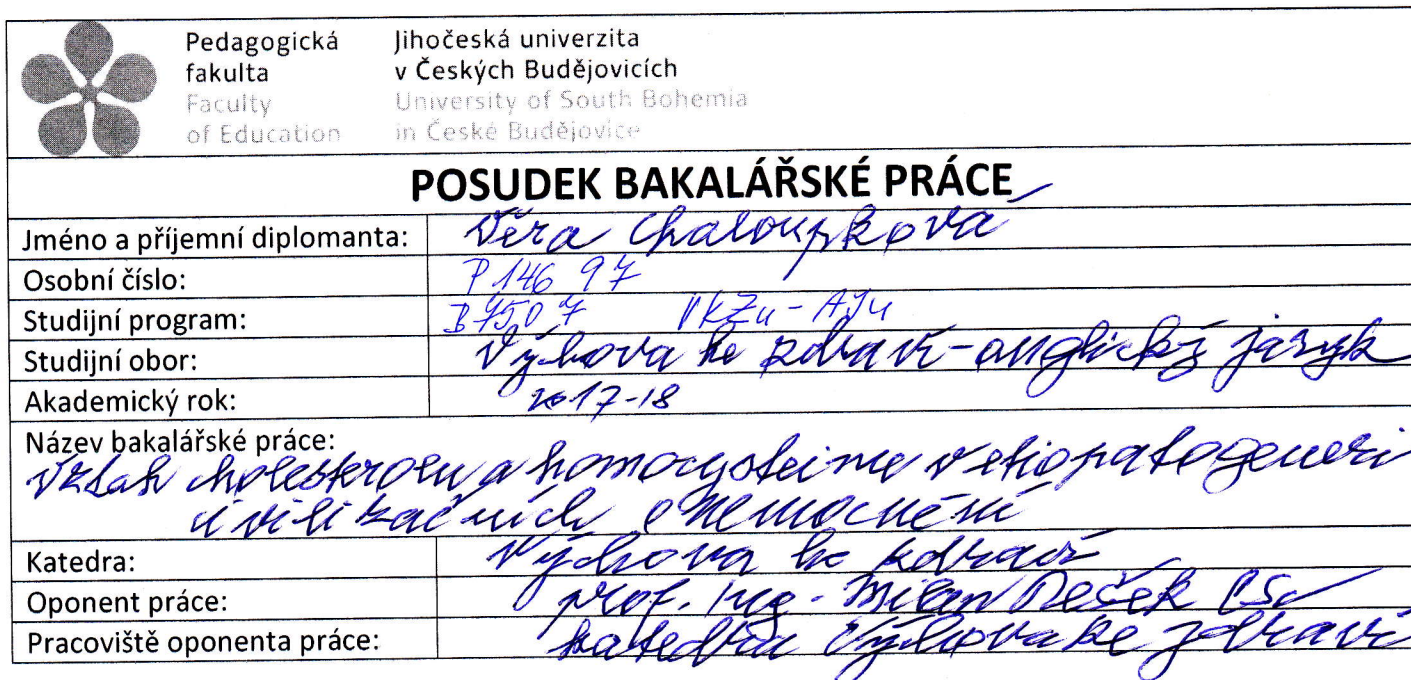 Pedagogická fakulta Jihočeská univerzita v Českých Budějovicích
Faculty of Education University of South Bohemia in České Budějovice
POSUDEK BAKALÁŘSKÉ PRÁCE
Jméno a příjemní diplomanta: Věra Chaloupková
Osobní číslo: P14697
Studijní program: B7507 VKZu-AJu
Studijní obor: Výchova ke zdraví-anglický jazyk
Akademický rok: 2017-18
Název bakalářské práce:
Vztah cholesterolu a homocysteinu v etiopatogenezi
civilizačních onemocnění
Katedra: Výchova ke zdraví
Oponent práce: prof. Ing. Milan Pešek CSc
Pracoviště oponenta práce: katedra výchova ke zdraví